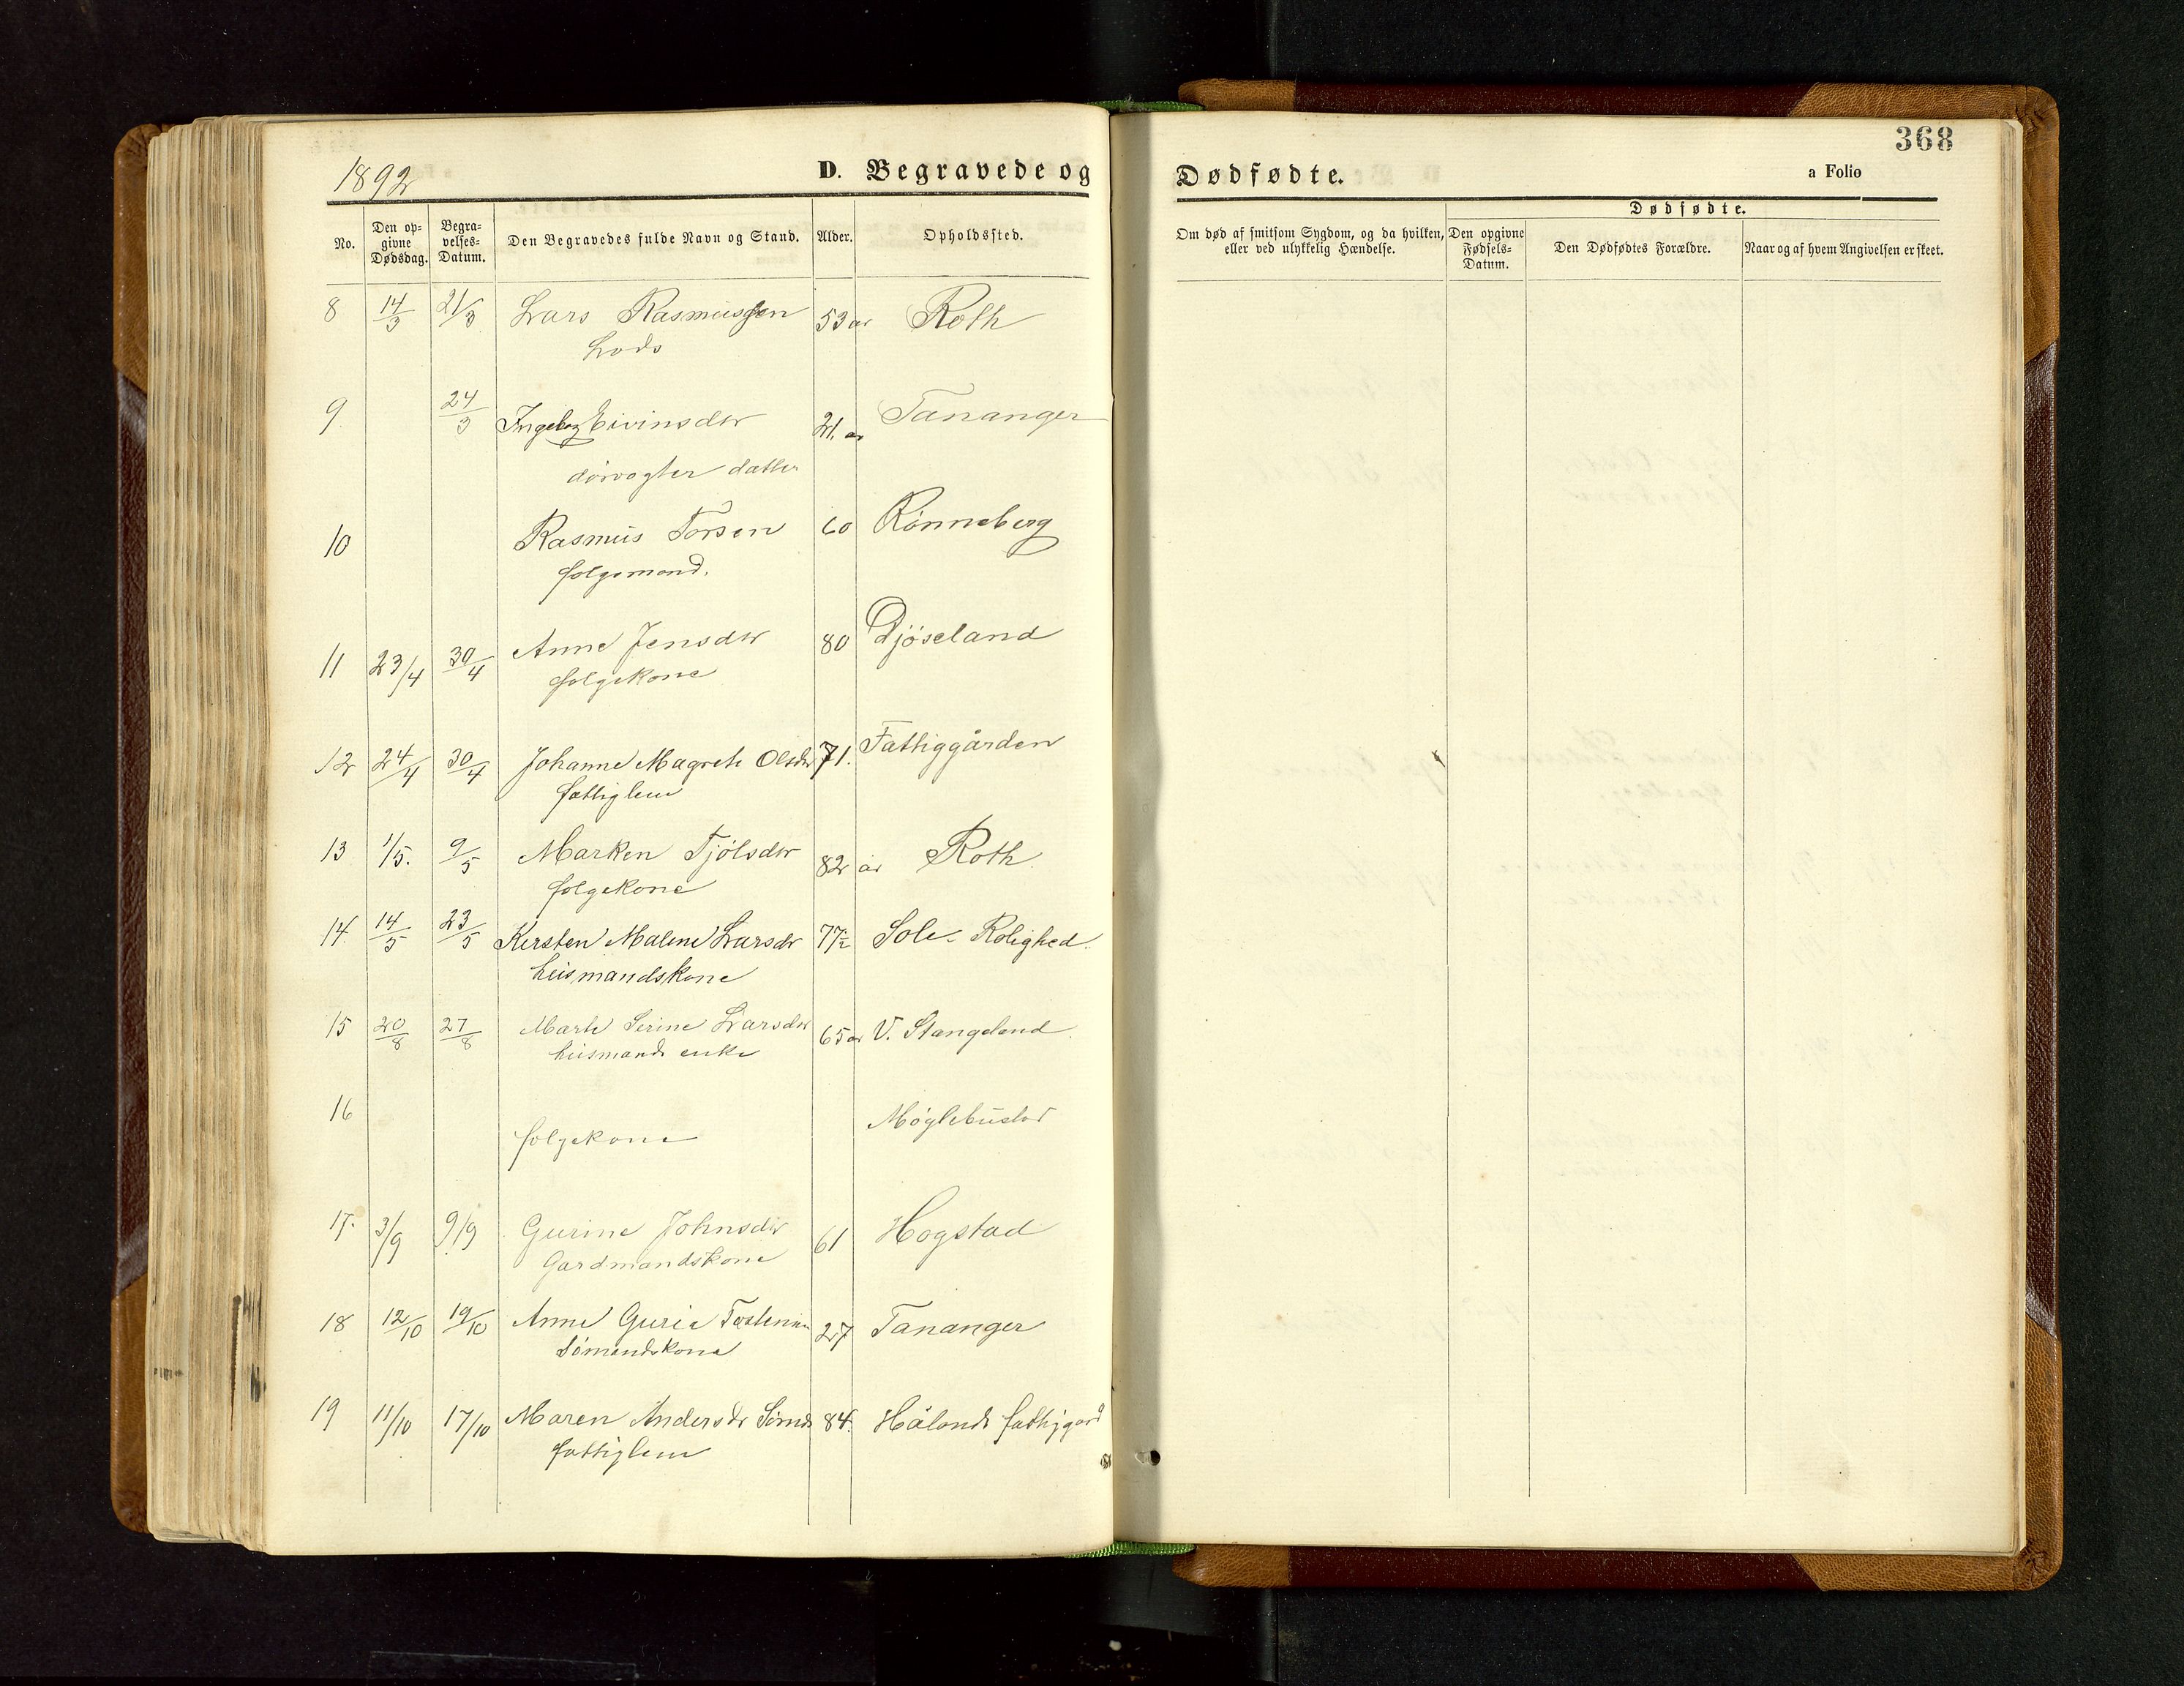 1892
D. Begravede og
No.
Den op-
givne
Dødsdag.
Begra-
velses-
Datum.
Den Begravedes fulde Navn og Stand.
Alder.
Opholdssted.
8 14/3 21/3 Lars Rasmussen 53 ar Roth
Lods
9 24/3 Ingeborg Eivinsdtr 21. ar Tananger
dørvogter datter
10 Rasmus Torsen 60 Rønneberg
folgemand.
11 23/4 30/4 Anne Jensdtr 80 Djöseland
folgekone
12 24/4 30/4 Johanne Magrete Olsdtr 71. Fattiggården
fattiglem
13 1/5. 9/5 Marken Tjölsdtr 82 år Roth
folgekone
14 14/5 23/5 Kersten Malene Larsdtr 77½ Sole - Rolighed
husmandskone
15 20/8 27/8 Marte Serine Larsdtr 65 ar V. Stangeland
husmands enke
16 Møglebustad
folgekone
17. 3/9 9/9 Gurine Johnsdtr 61 Hogstad
Gardmandskone
18 12/10 19/10 Anne Gurie 27 Tananger
Sömandskone
19 11/10 17/10 Maren Andersdr Sømd 84. Hålands fattiggard
fattiglem
368
Dødfødte.
a Folio
Om død af smitsom Sygdom, og da hvilken,
eller ved ulykkelig Hændelse.
Dødfødte.
Den opgivne
Fødsels-
Datum.
Den Dødfødtes Forældre.
Naar og af hvem Angivelsen er skeet.